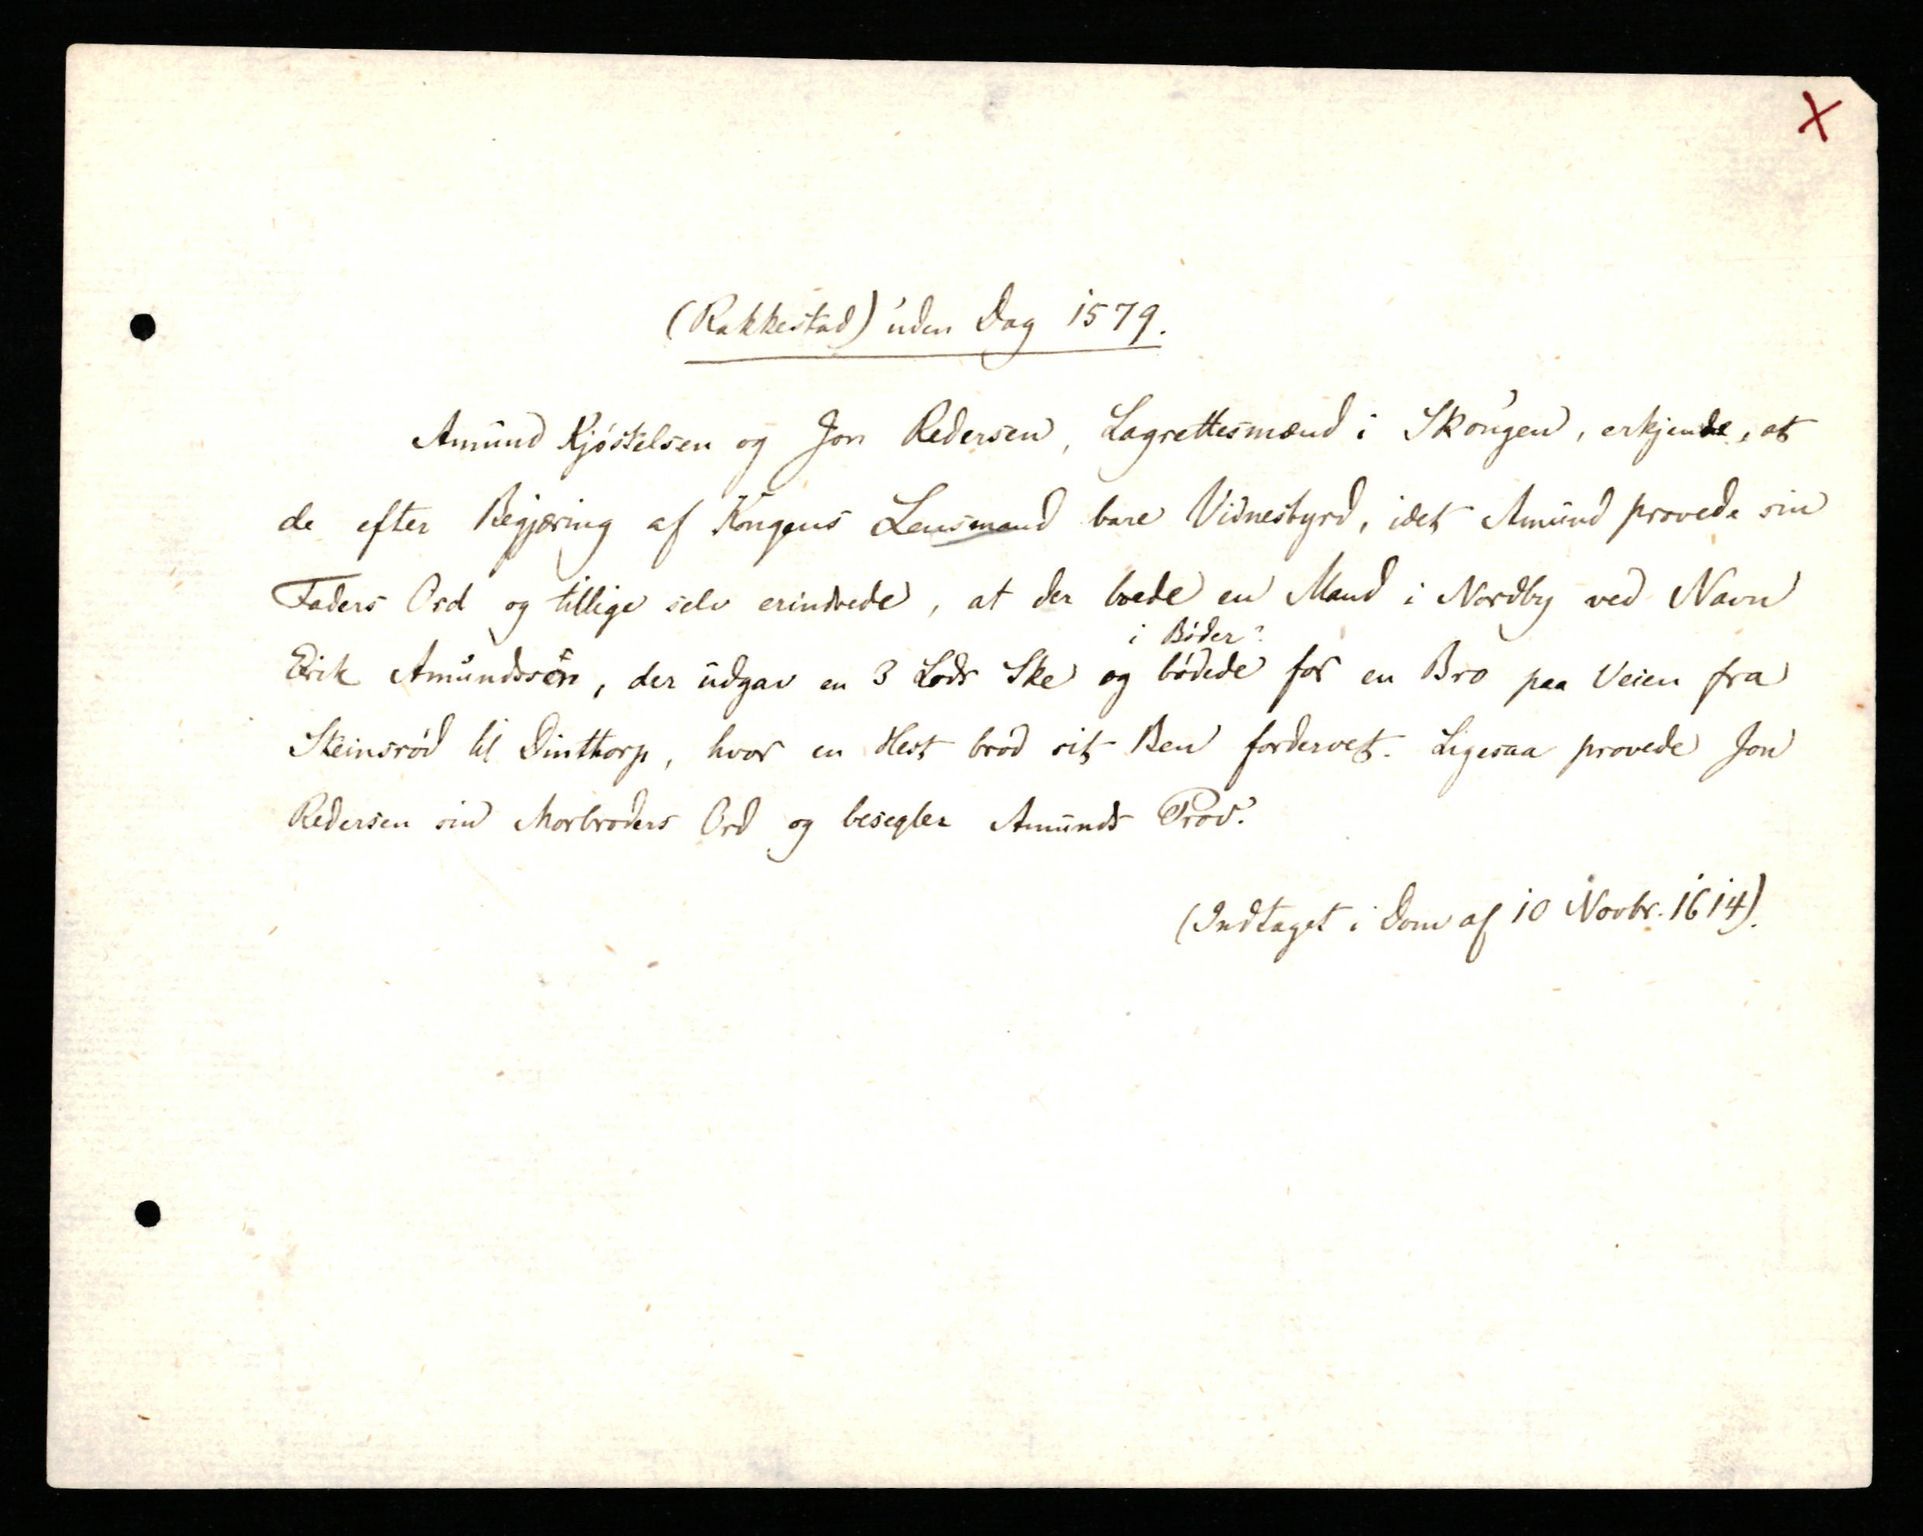 X
(Rakkestad) uden Dag 1579.
Amund Kjøstelsen og Jon Redersen, Lagrettesmænd i Skougen, erkjende, at
de efter Begjæring af Kongens Lensmand bare Vidnesbyrd, idet Amund provede sin
Faders Ord og tillige selv erindrede, at der boede en Mand i Nordby ved Navn
i Bøder?
Erik Amundssøn, der udgav en 3 Lods Ske og bødede for en Bro paa Veien fra
Steinsrød til Dinthorp, hvor en Hest brød sit Ben fordervet. Ligesaa provede Jon
Redersen sin Morbroders Ord og besegler Amunds Prov.
(Indtaget i Dom af 10 Novbr. 1614).